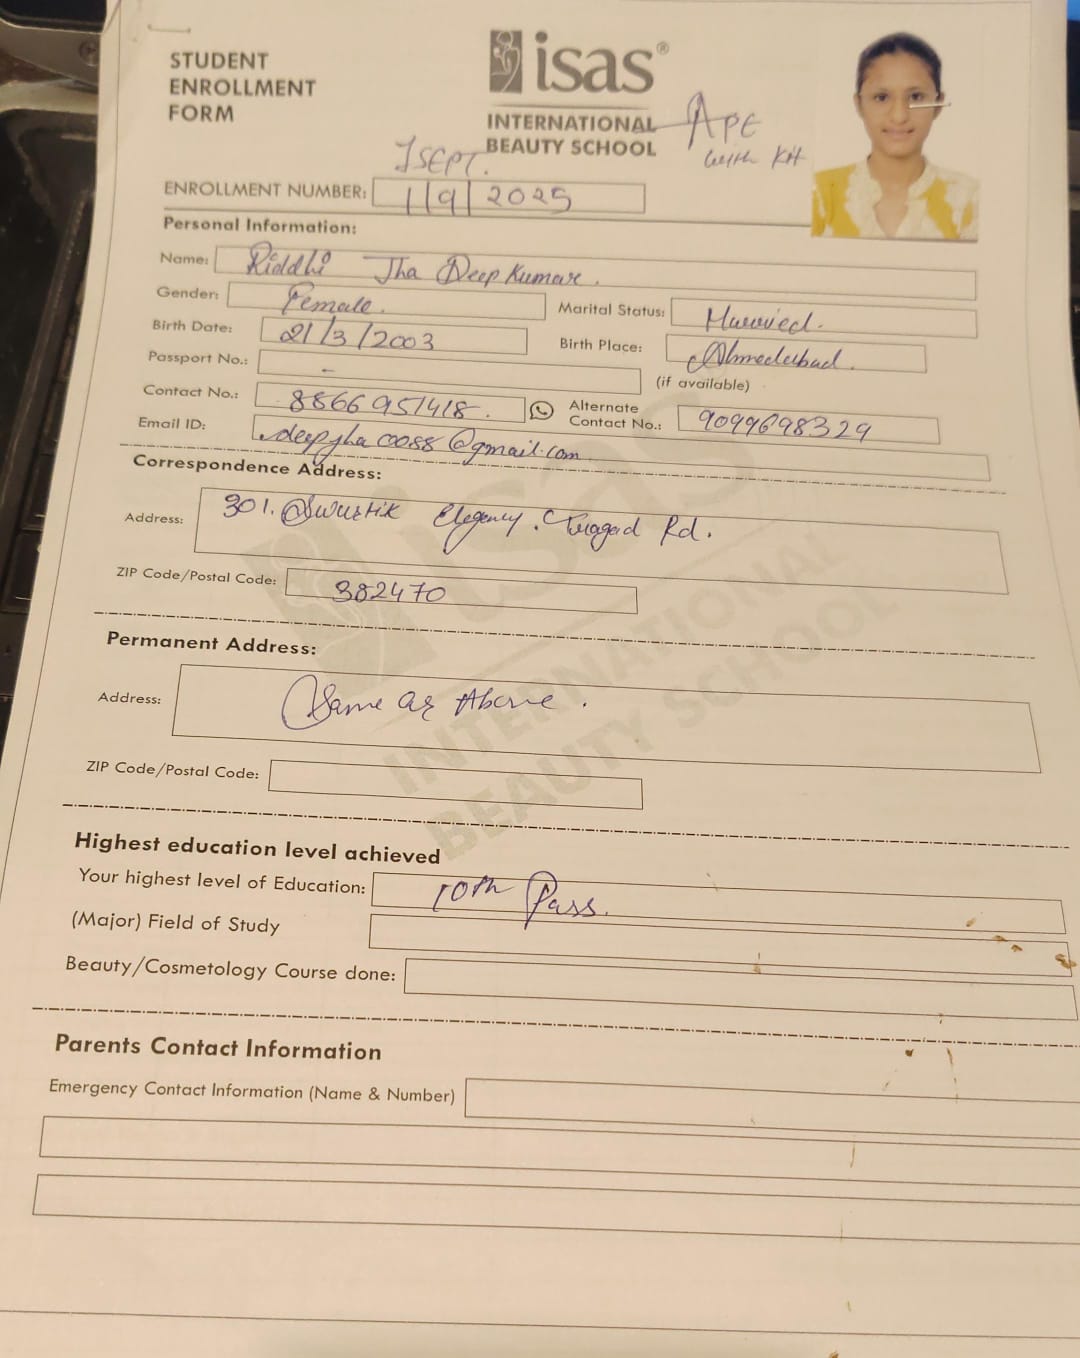 STUDENT
ENROLLMENT
FORM
isas®
INTERNATIONAL
BEAUTY SCHOOL
APE
with Kit
1 SEPT.
ENROLLMENT NUMBER: 1/9/2025
Personal Information:
Name: Riddhi Jha Deep Kumar.
Gender: Female. Marital Status: Married.
Birth Date: 21/3/2003 Birth Place: Ahmedabad.
Passport No.: - (if available)
Contact No.: 8866951418. Alternate Contact No.: 9099698329
Email ID: deepjha0088@gmail.com
Correspondence Address:
Address: 301. Swastik Elegancy. Tragad Rd.
ZIP Code/Postal Code: 382470
Permanent Address:
Address: Same as Above.
ZIP Code/Postal Code:
Highest education level achieved
Your highest level of Education: 10th Pass.
(Major) Field of Study
Beauty/Cosmetology Course done:
Parents Contact Information
Emergency Contact Information (Name & Number)
isas
INTERNATIONAL
BEAUTY SCHOOL